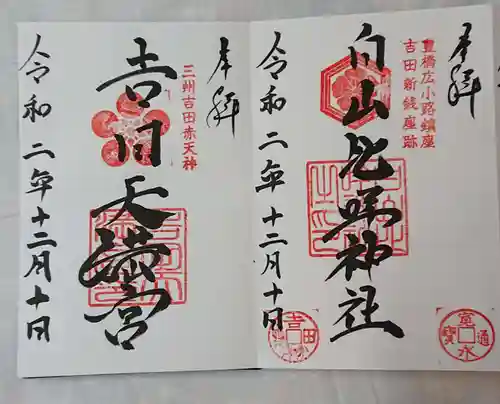 奉拝
豊橋広小路鎮座
吉田新銭座跡
白山比咩神社
令和二年十二月十日
寛永通寳
吉田
奉拝
三州吉田赤天神
吉田天満宮
令和二年十二月十日